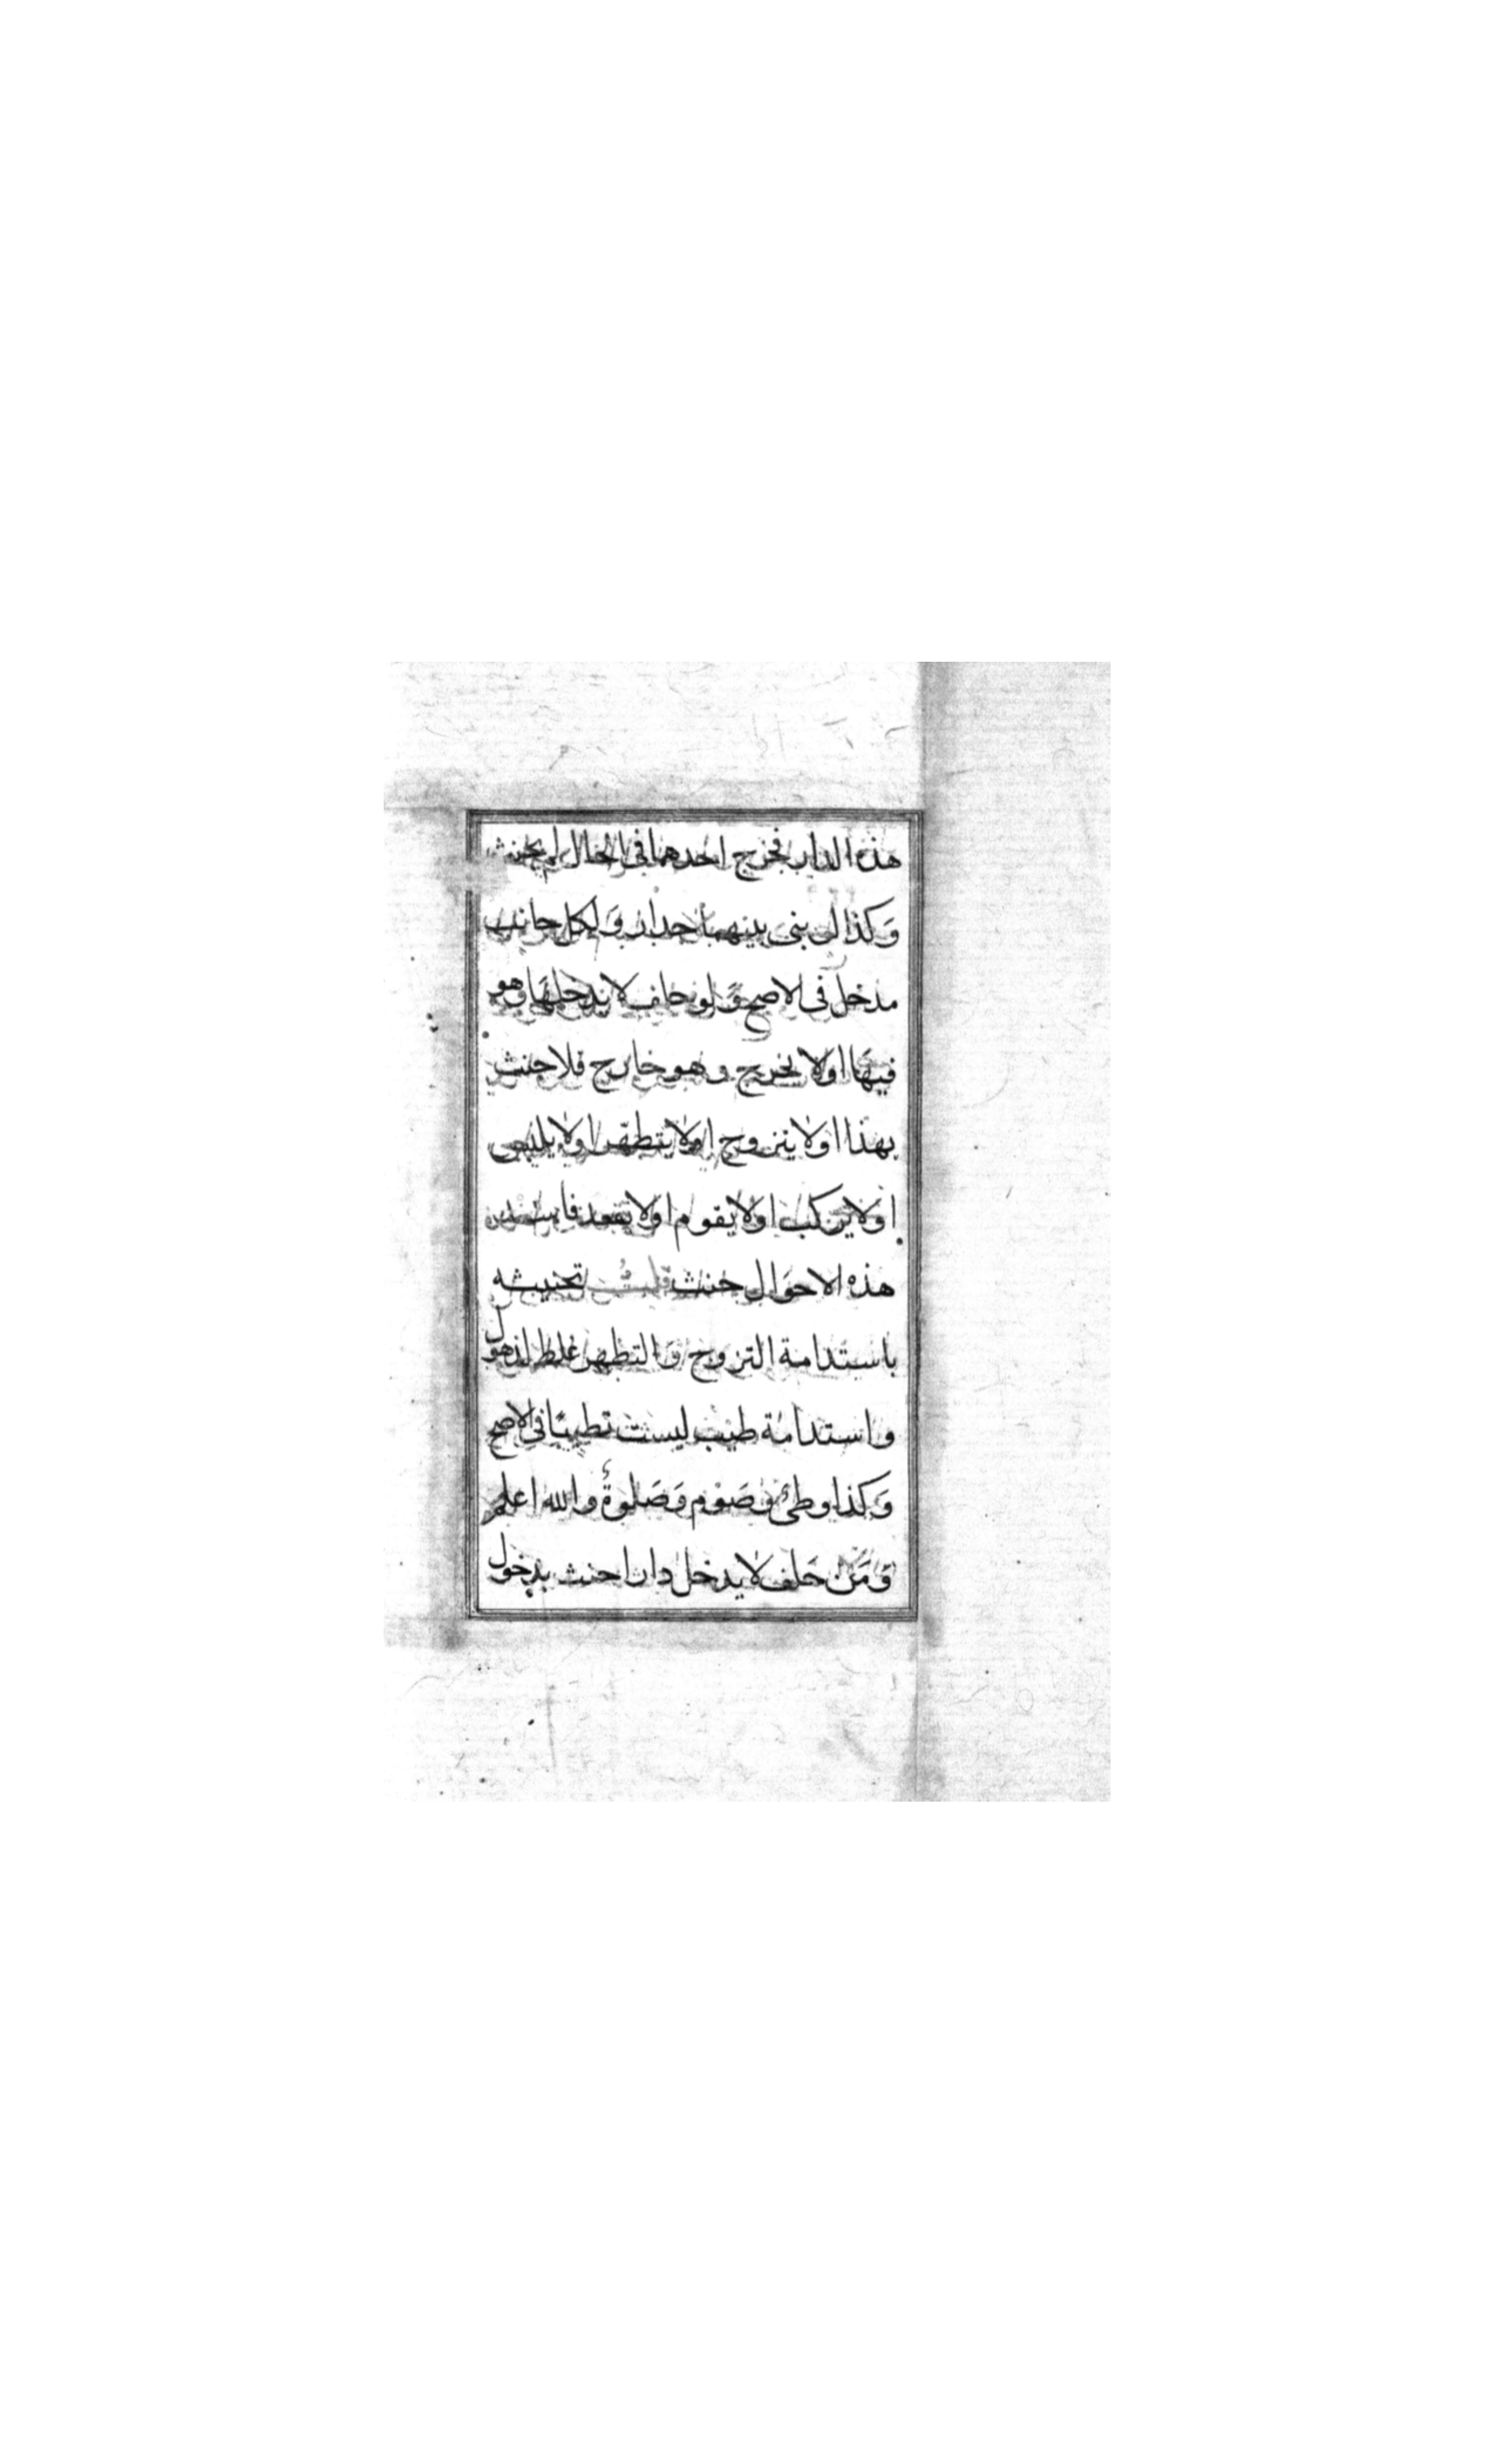 هذه الدار فخرج احدهما في الحال لم يحنث
وَكذا لو بنى بينهما جدار وَلكل جانب
مدخل في الاصح وَلو حلف لا يدخلها وهو
فيها او لا يخرج وهو خارج فلا حنث
بهذا او لا يتزوج او لا يتطهر او لا يلبس
او لا يركب او لا يقوم او لا يقعد فاستدام
هذه الاحوَال حنث قلتُ تحنيثه
باستدامة التزوج وَالتطهر غلط لذهول
واستدامة طيب ليست تطيبًا في الاصح
وَكذا وطئ وصَوْم وَصَلوة والله اعلم
وَمَن حَلف لا يدخل دارا حنث بدخول